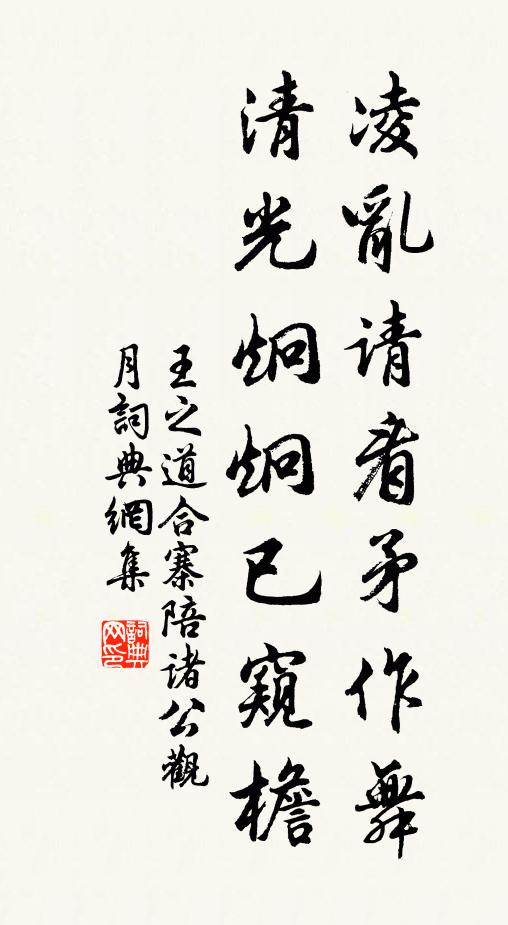 凌亂请看矛作舞
清光炯炯已窺檐
王之道合寨陪诸公觀
月詞典網集
詞典网印